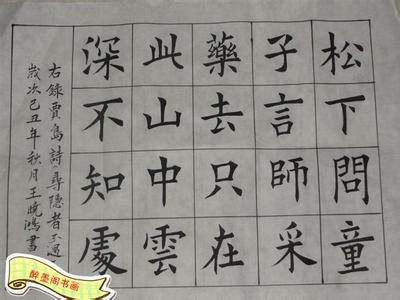 松下問童
子言師采
藥去只在
此山中雲
深不知處
右錄賈島詩尋隱者不遇
歲次己丑年秋月王曉鴻書
醉墨阁书画